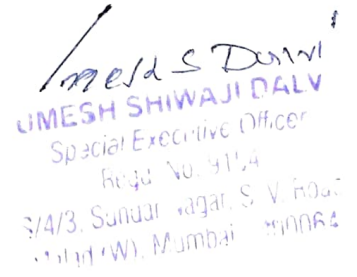 Umesh S Dalvi
UMESH SHIWAJI DALV
Special Executive Officer
Regd No. 9154
S/4/3, Sundar Nagar, S. V. Road
(W), Mumbai